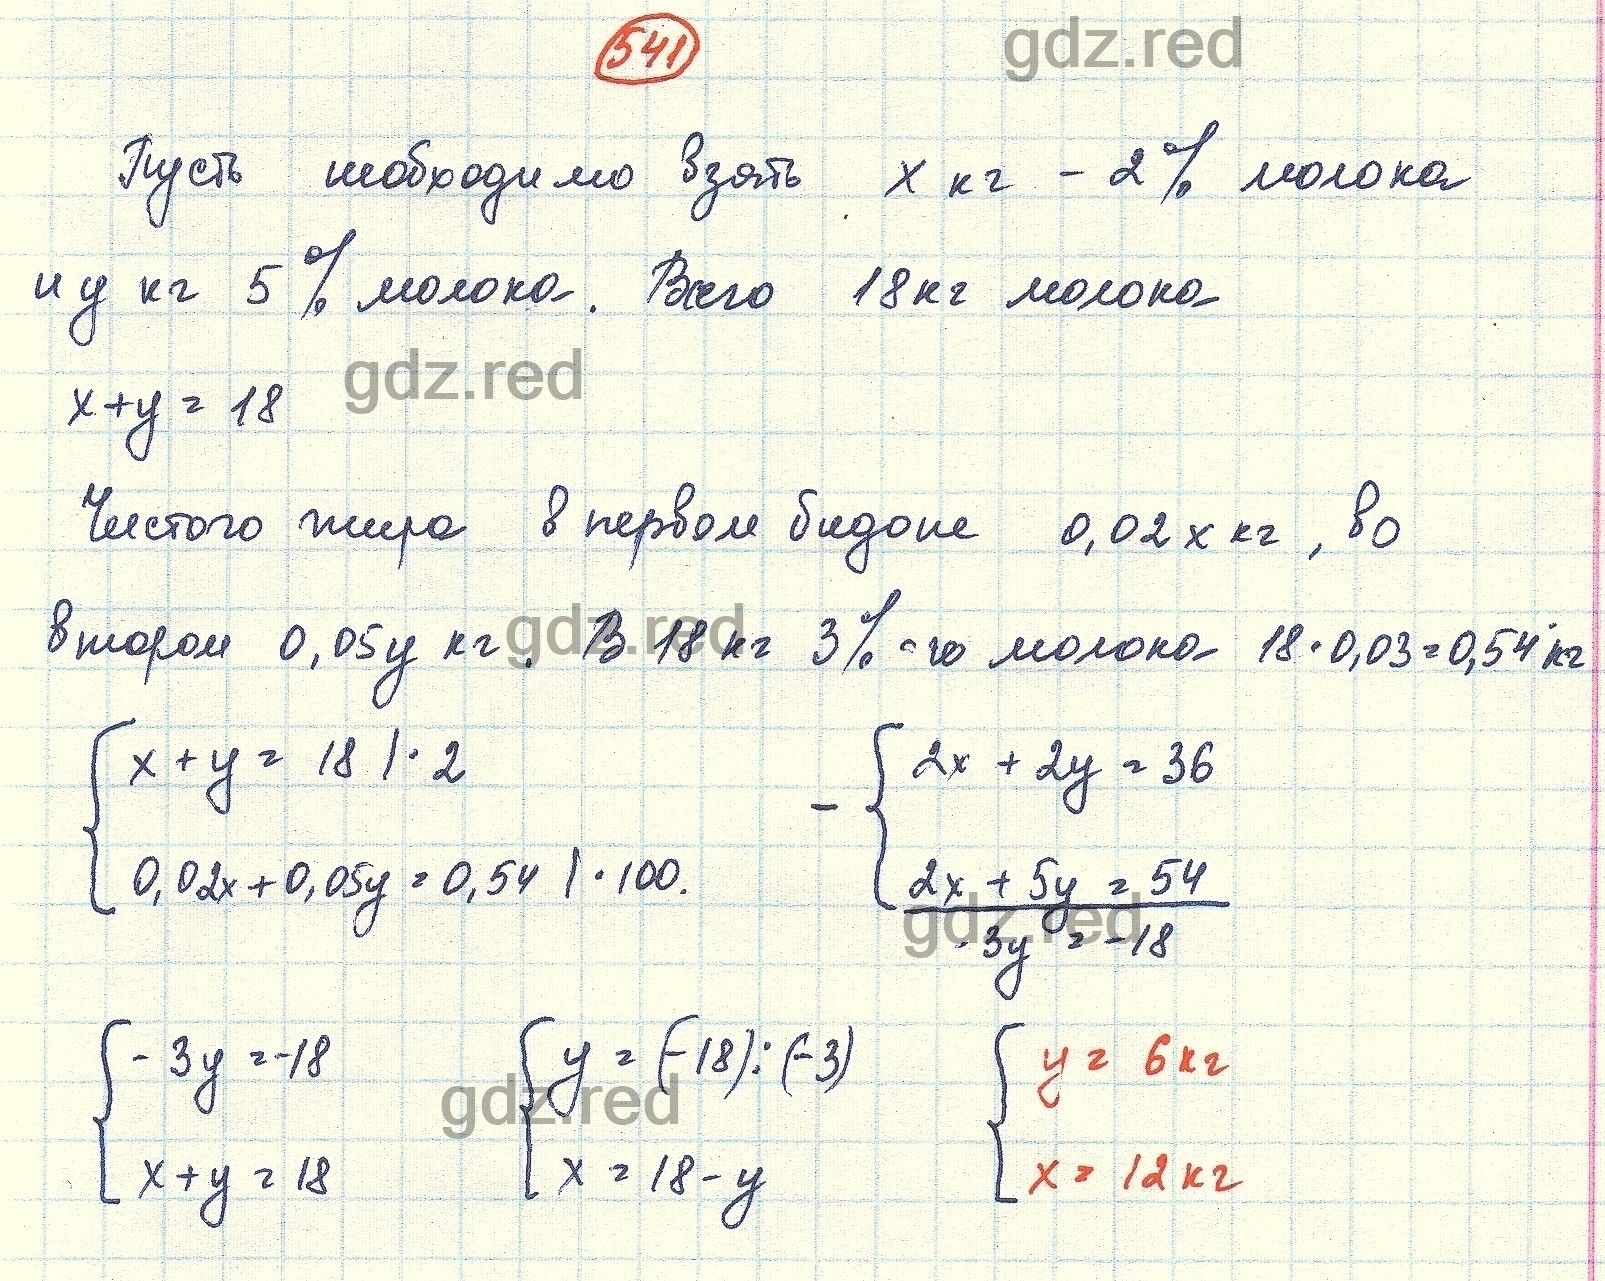 541
gdz.red
Пусть необходимо взять x кг - 2% молока
и y кг 5% молока. Всего 18 кг молока
gdz.red
x+y = 18
Чистого жира в первом бидоне 0,02x кг, во
втором 0,05y кг. В 18 кг 3%-го молока 18·0,03=0,54 кг
gdz.red
{ x + y = 18 |·2
0,02x+0,05y=0,54 |·100.
- { 2x + 2y = 36
2x + 5y = 54
gdz.red
-3y = -18
{ -3y = -18
x+y = 18
{ y = (-18):(-3)
x = 18 - y
gdz.red
{ y = 6 кг
x = 12 кг